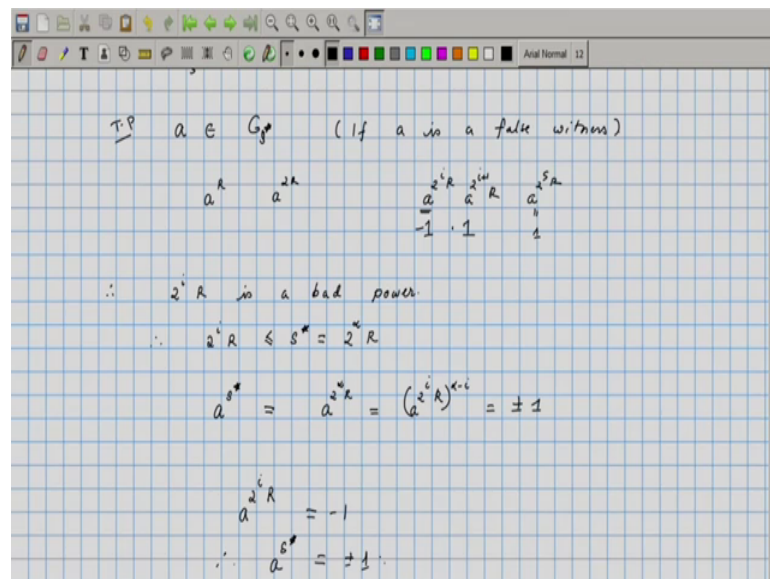 Arial Normal 12
T.P a ∈ G_{s*} (If a is a false witness)
a^R a^{2R} a^{2^i R} a^{2^{i+1} R} a^{2^s R}
-1 . 1 1
∴ 2^i R is a bad power.
∴ 2^i R ≤ s* = 2^α R
a^{s*} = a^{2^α R} = (a^{2^i R})^{α-i} = ± 1
a^{2^i R} = -1
∴ a^{s*} = ± 1.